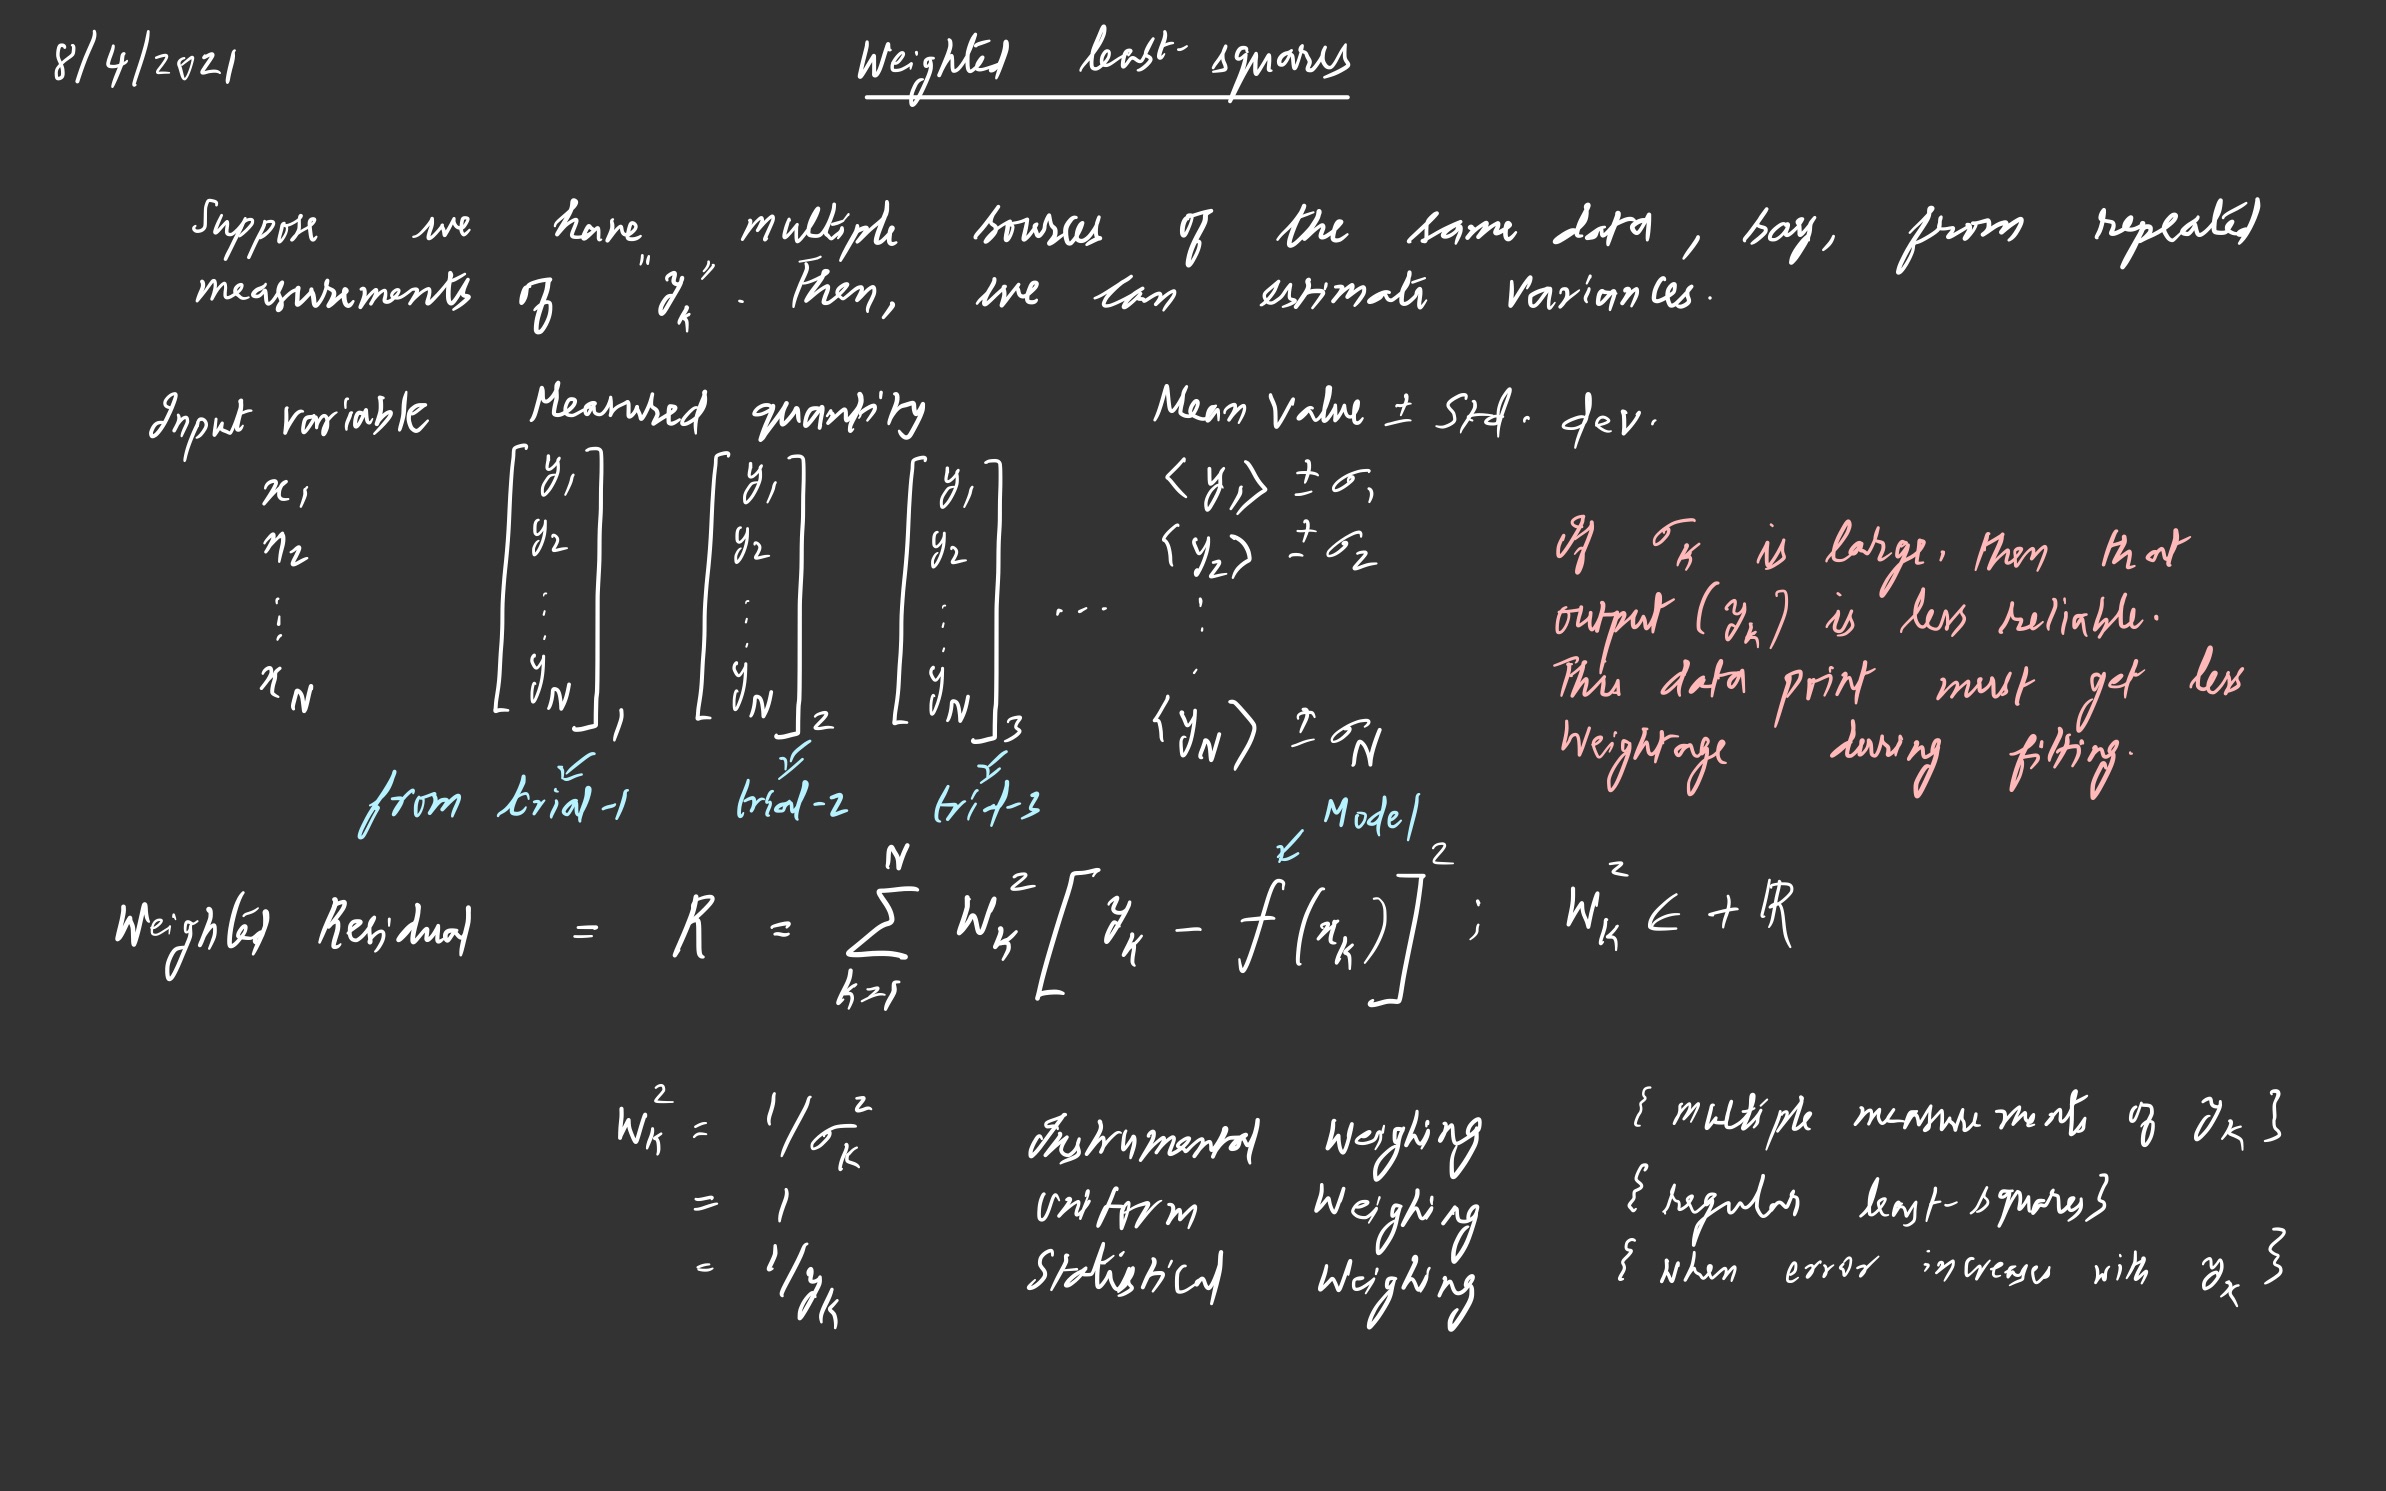 8/4/2021
Weighted least-squares
Suppose we have multiple sources of the same data, say, from repeated
measurements of "y_k". Then, we can estimate variances.
Input variable Measured quantity Mean value ± Std. dev.
x_1 [y_1 [y_1 [y_1 ⟨y_1⟩ ± σ_1
x_2 y_2 y_2 y_2 ⟨y_2⟩ ± σ_2
⋮ ⋮ ⋮ ⋮ ... ⋮
x_N y_N]_1 y_N]_2 y_N]_3 ⟨y_N⟩ ± σ_N
If σ_k is large, then that
output (y_k) is less reliable.
This data point must get less
weightage during fitting.
from trial-1 trial-2 trial-3
Model
Weighted Residual = R = ∑_{k=1}^{N} W_k^2 [y_k - f(x_k)]^2 ; W_k^2 ∈ +ℝ
W_k^2 = 1/σ_k^2 Instrumental Weighing {multiple measurements of y_k}
= 1 Uniform Weighing {regular least-squares}
= 1/y_k Statistical Weighing {when error increases with y_x}